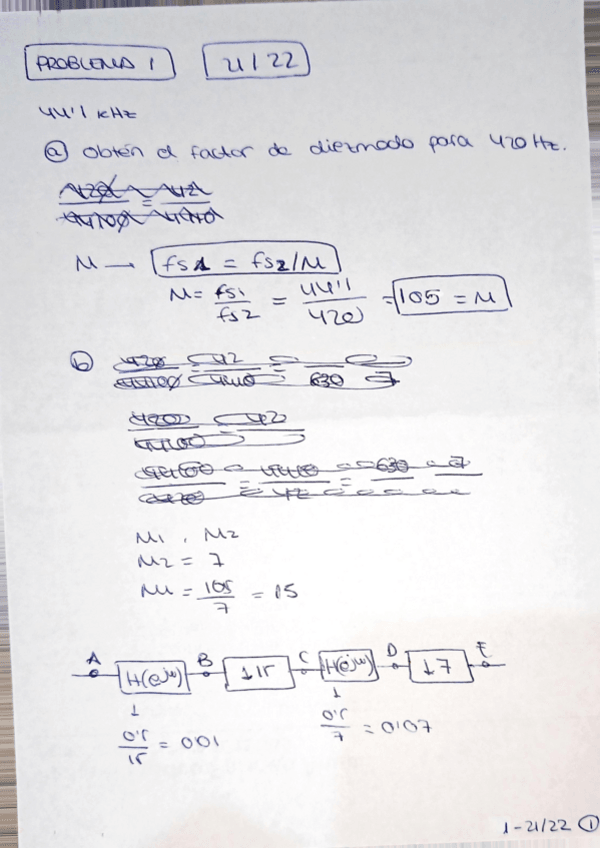 PROBLEMA 1 21/22
44'1 kHz
a) Obtén el factor de diezmado para 420 Hz.
M → fs1 = fs2/M
M = fs1/fs2 = 44'1/420 = 105 = M
b)
M1, M2
M2 = 7
M1 = 105/7 = 15
A H(ejω) B ↓15 C H(ejω) D ↓7 E
0'5/15 = 001 0'5/7 = 0'07
1-21/22 1